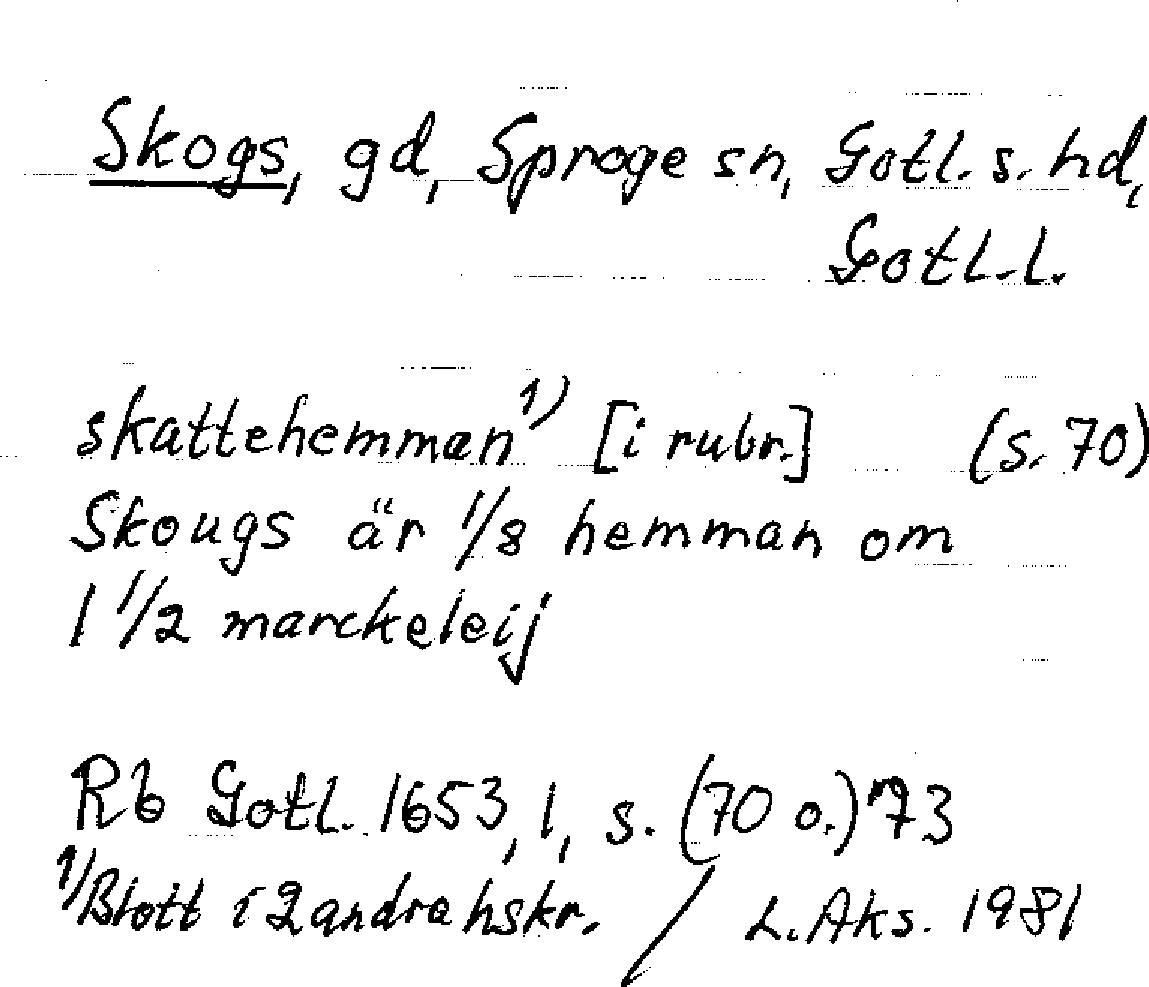 Skogs, gd, Sproge sn, Gotl. s. hd,
Gotl. l.
skattehemman¹⁾ [i rubr.] (s. 70)
Skougs är 1/8 hemman om
1 1/2 marckeleij
Rb Gotl. 1653, 1, s. (70 o.) 73
¹⁾Blott i 2 andra hskr. / L. Aks. 1981